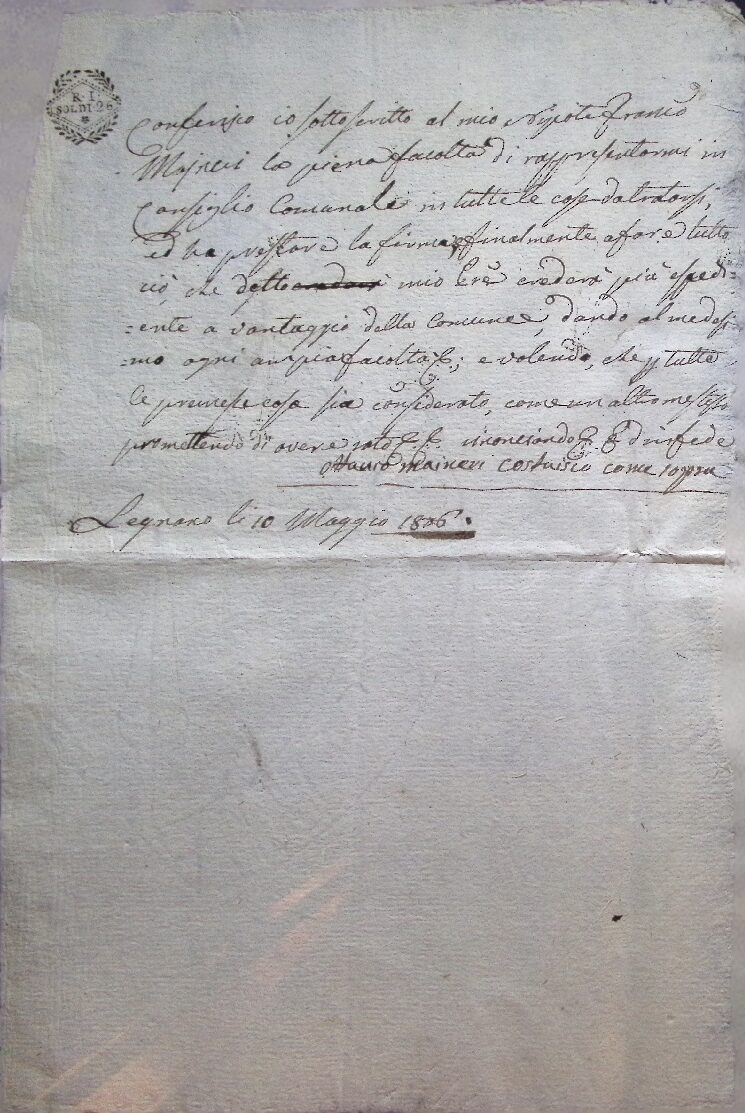 R. I.
SOLDI 26
Conferisco io sottoscritto al mio Nipote Franco
Majneri la piena facoltà di rappresentarmi in
Consiglio Comunale in tutte le cose da trattarsi,
ed ha prestare la firma, e finalmente a fare tutto
ciò, che detto mio crederà più espedi-
=ente a vantaggio della Comune, dando al medesi
=mo ogni ampia facoltà; e volendo, che p tutte
le premesse cose sia considerato, come un altro me stesso
promettendo di avere rato in fede
Maineri costuisco come sopra
Legnano li 10 Maggio 1806.